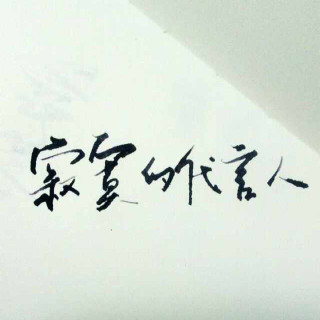 寂寞的代言人